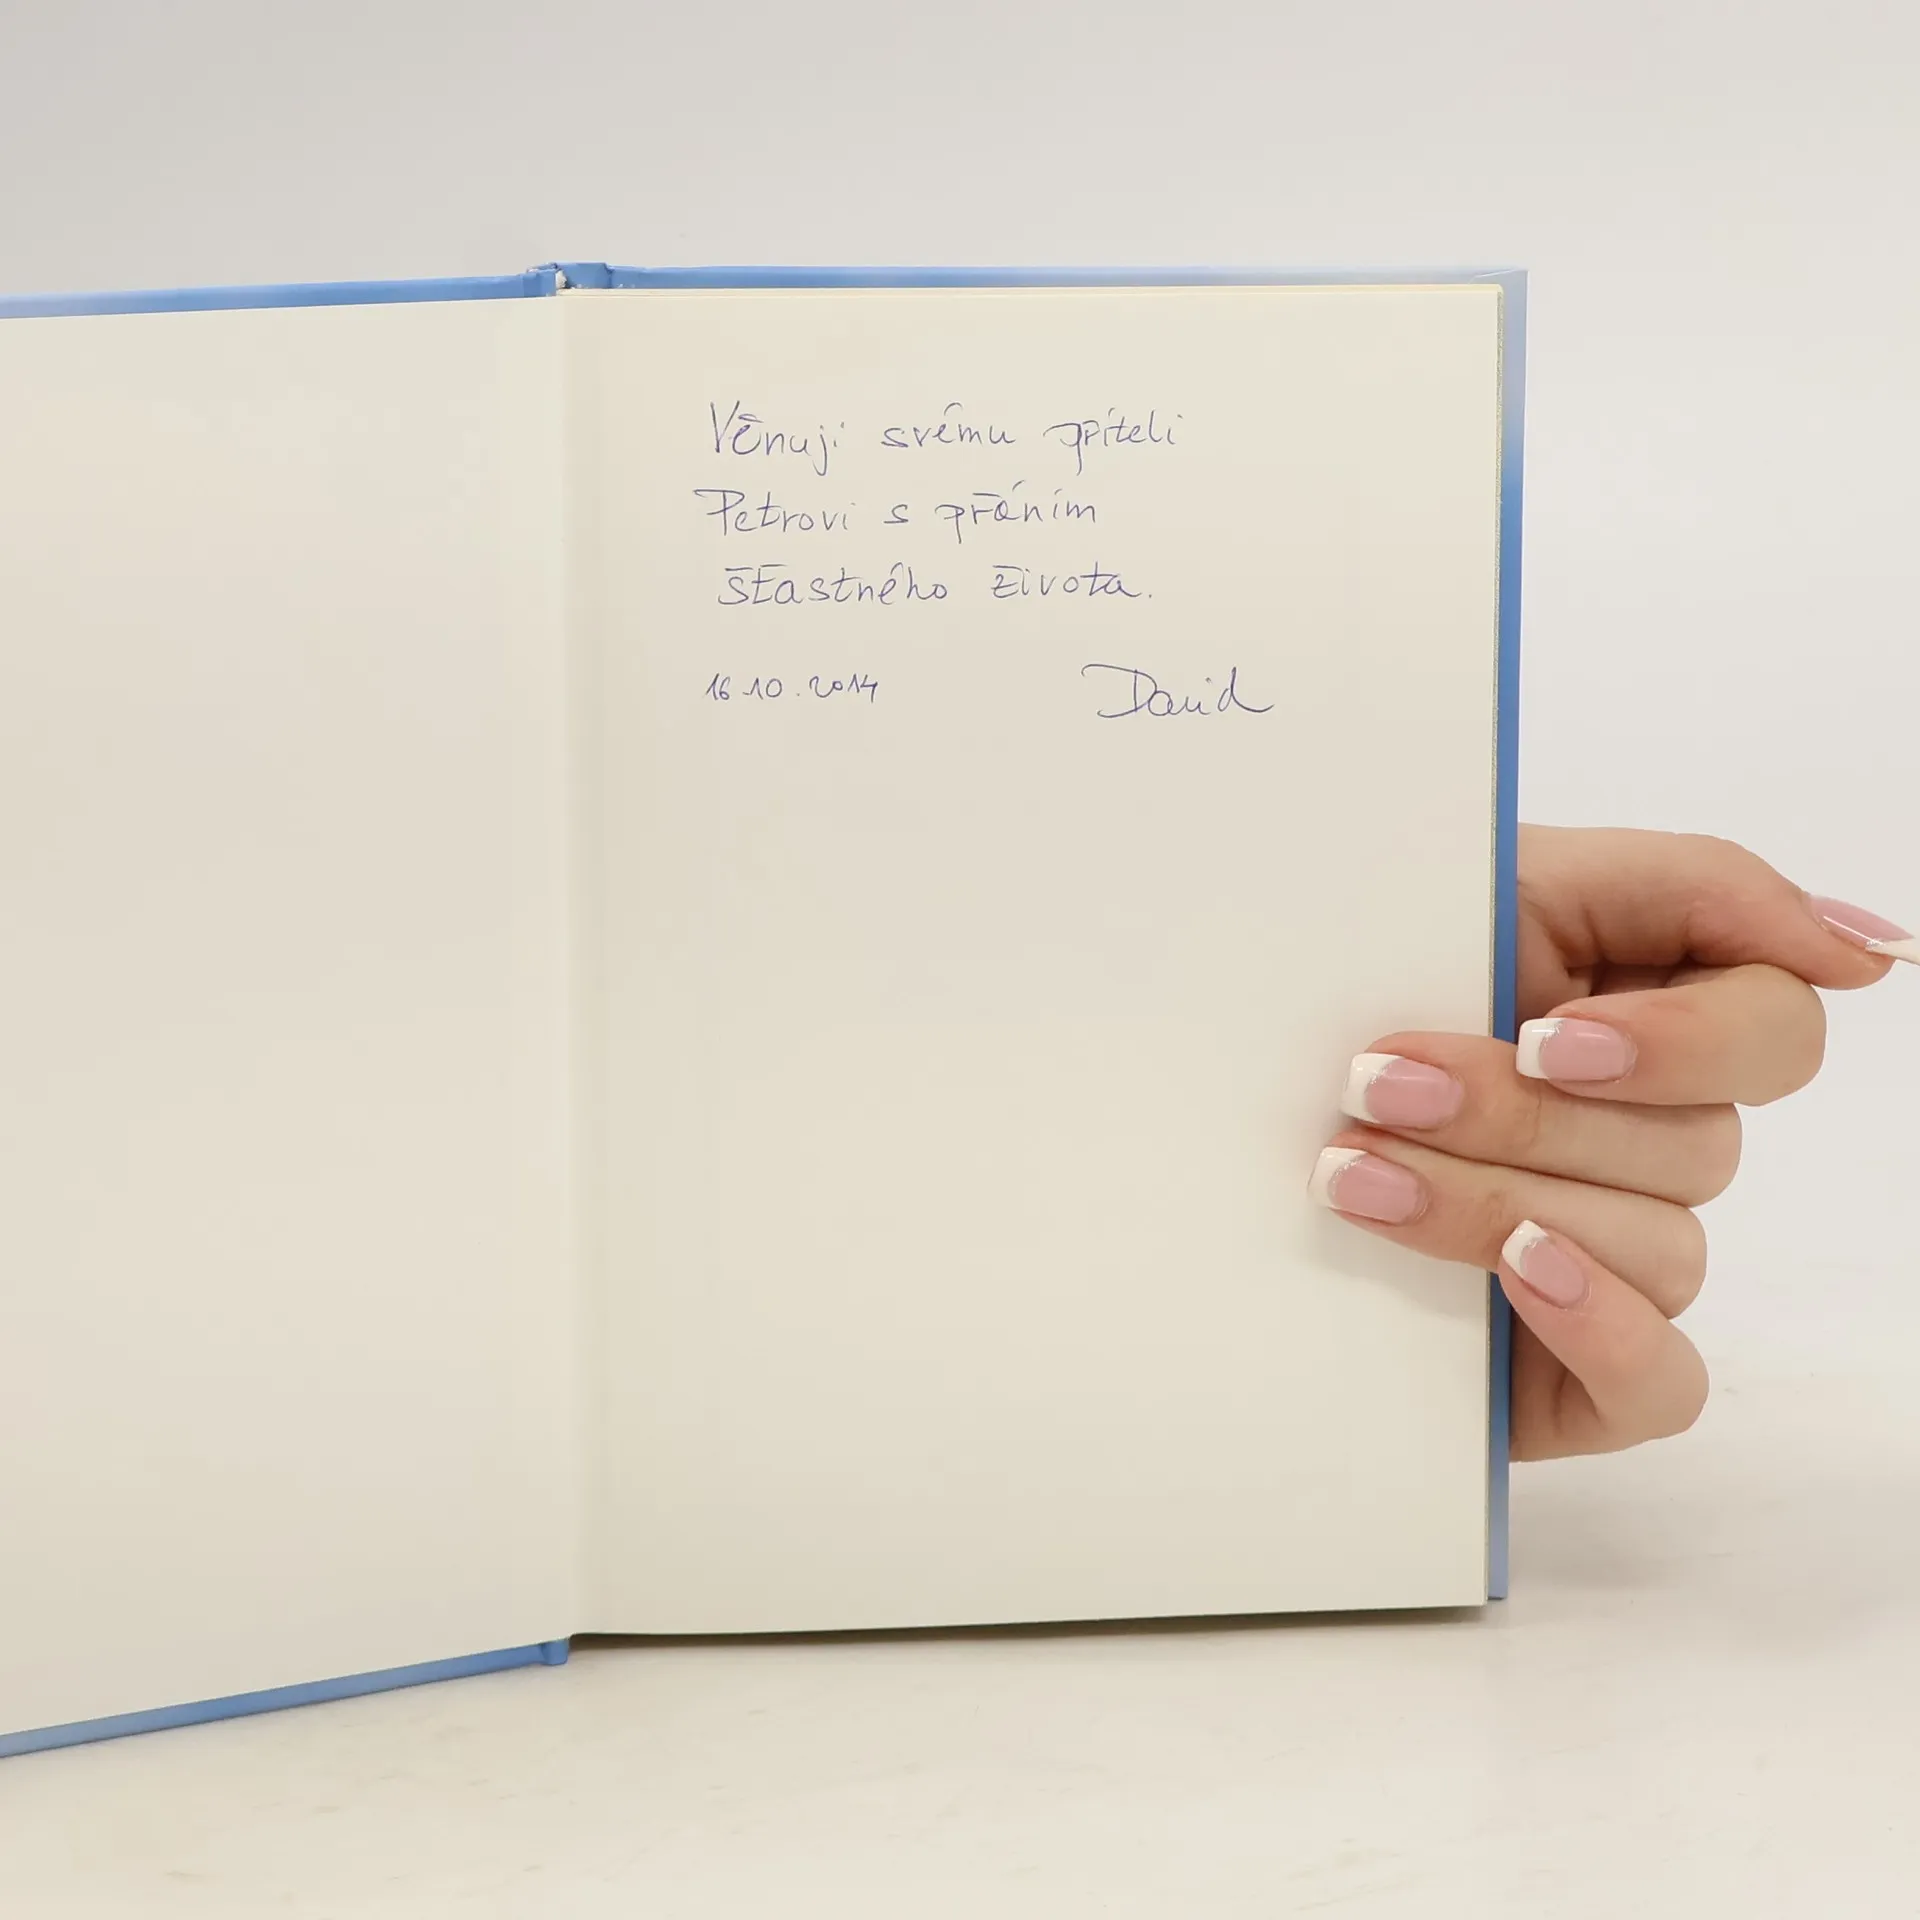 Věnuji svému příteli
Petrovi s přáním
šťastného života.
16.10.2014 David